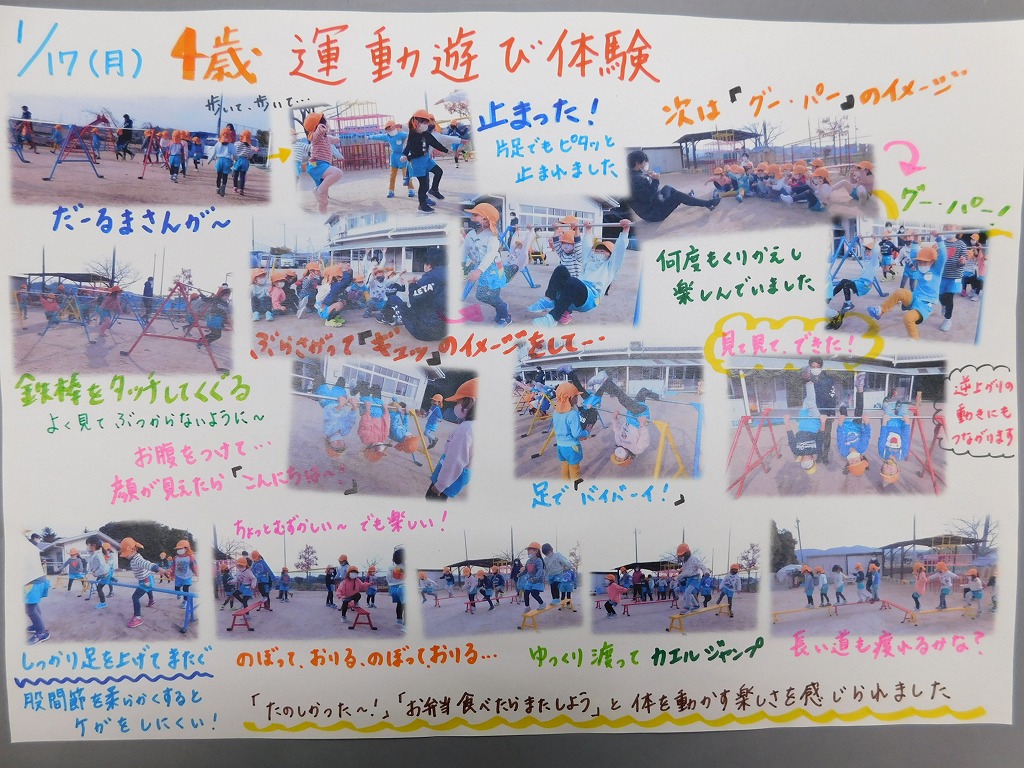 1/17(月) 4歳 運動遊び体験
歩いて、歩いて…
だーるまさんが〜
止まった!
片足でもピタッと
止まれました
次は「グー・パー」のイメージ
グー・パー!
何度もくりかえし
楽しんでいました
鉄棒をタッチしてくぐる
よく見てぶつからないように〜
ぶらさがって「ギュッ」のイメージをして…
見て見て、できた!
逆上がりの
動きにも
つながります
お腹をつけて…
顔が見えたら「こんにちは〜!」
足で「バイバーイ!」
ちょっとむずかしい〜 でも楽しい!
しっかり足を上げてまたぐ
股関節を柔らかくすると
ケガをしにくい!
のぼって、おりる、のぼって、おりる…
ゆっくり渡って カエルジャンプ
長い道も渡れるかな?
「たのしかった〜!」「お弁当食べたらまたしよう」と体を動かす楽しさを感じられました